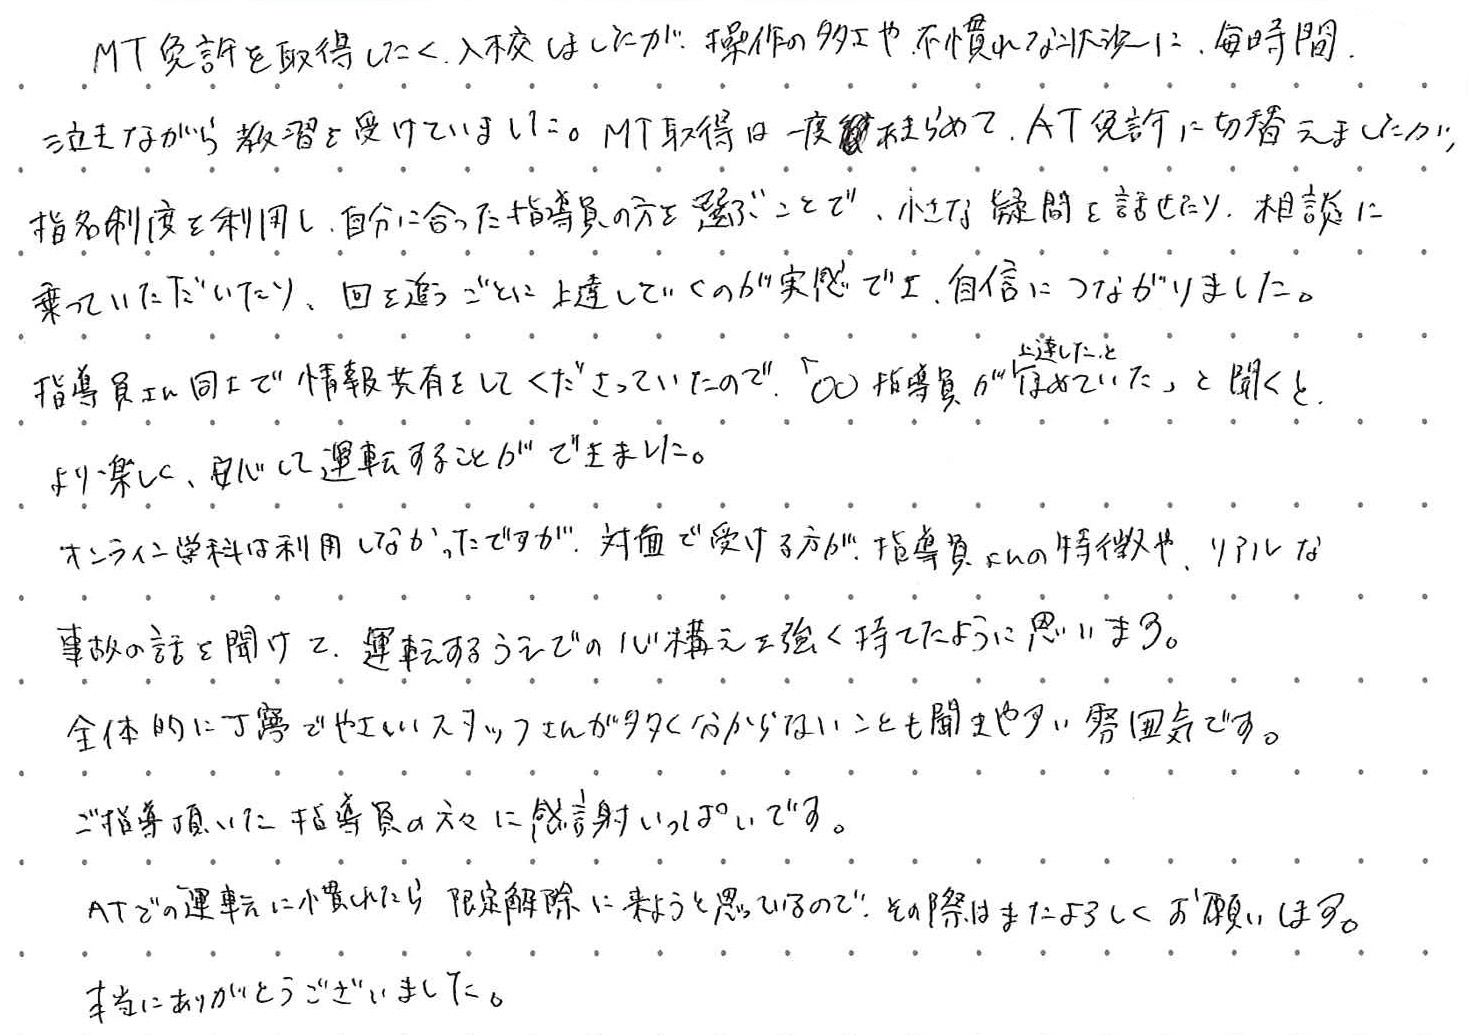 MT免許を取得したく、入校しましたが、操作の多さや不慣れな状況に、毎時間、
泣きながら教習を受けていました。MT取得は一度あきらめて、AT免許に切替えましたが、
指名制度を利用し、自分に合った指導員の方を選ぶことで、小さな疑問を話せたり、相談に
乗っていただいたり、回を追うごとに上達していくのが実感でき、自信につながりました。
指導員さん同士で情報共有をしてくださっていたので、「〇〇指導員が上達したこと褒めていた」と聞くと、
より楽しく、安心して運転することができました。
オンライン学科は利用しなかったですが、対面で受ける方が、指導員さんの特徴や、リアルな
事故の話を聞けて、運転するうえでの心構えを強く持てたように思います。
全体的に丁寧でやさしいスタッフさんが多く分からないことも聞きやすい雰囲気です。
ご指導頂いた指導員の方々に感謝いっぱいです。
ATでの運転に慣れたら限定解除に来ようと思っているので、その際はまたよろしくお願いします。
本当にありがとうございました。